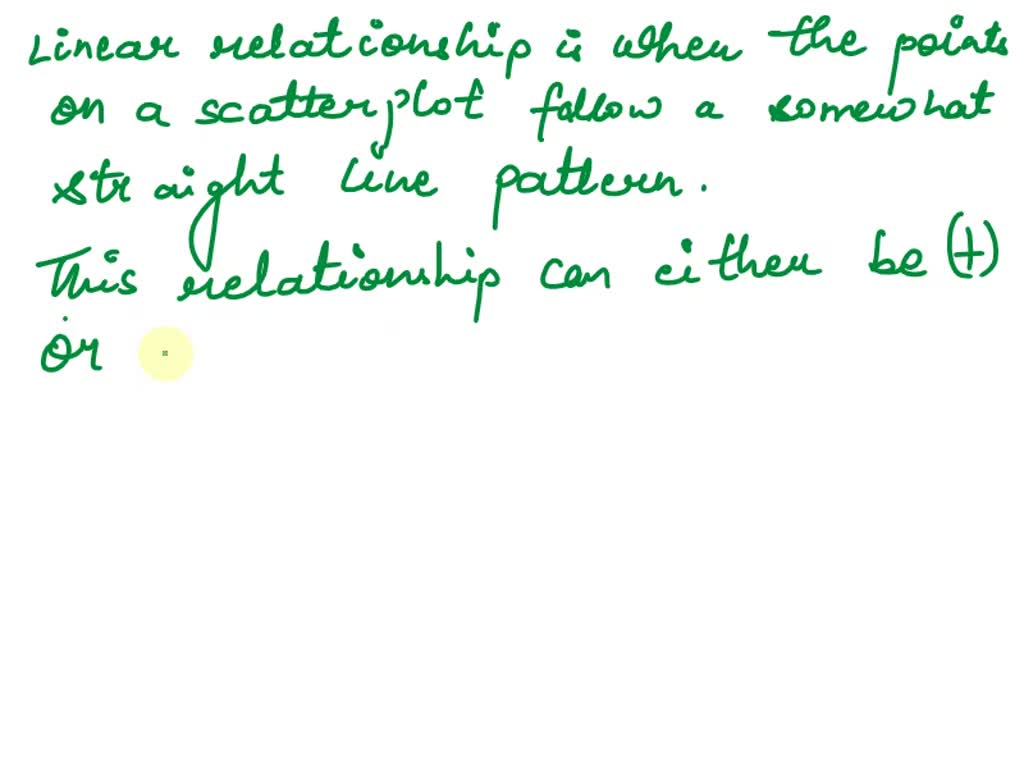 Linear relationship is when the points
on a scatterplot follow a somewhat
straight line pattern.
This relationship can either be (+)
or